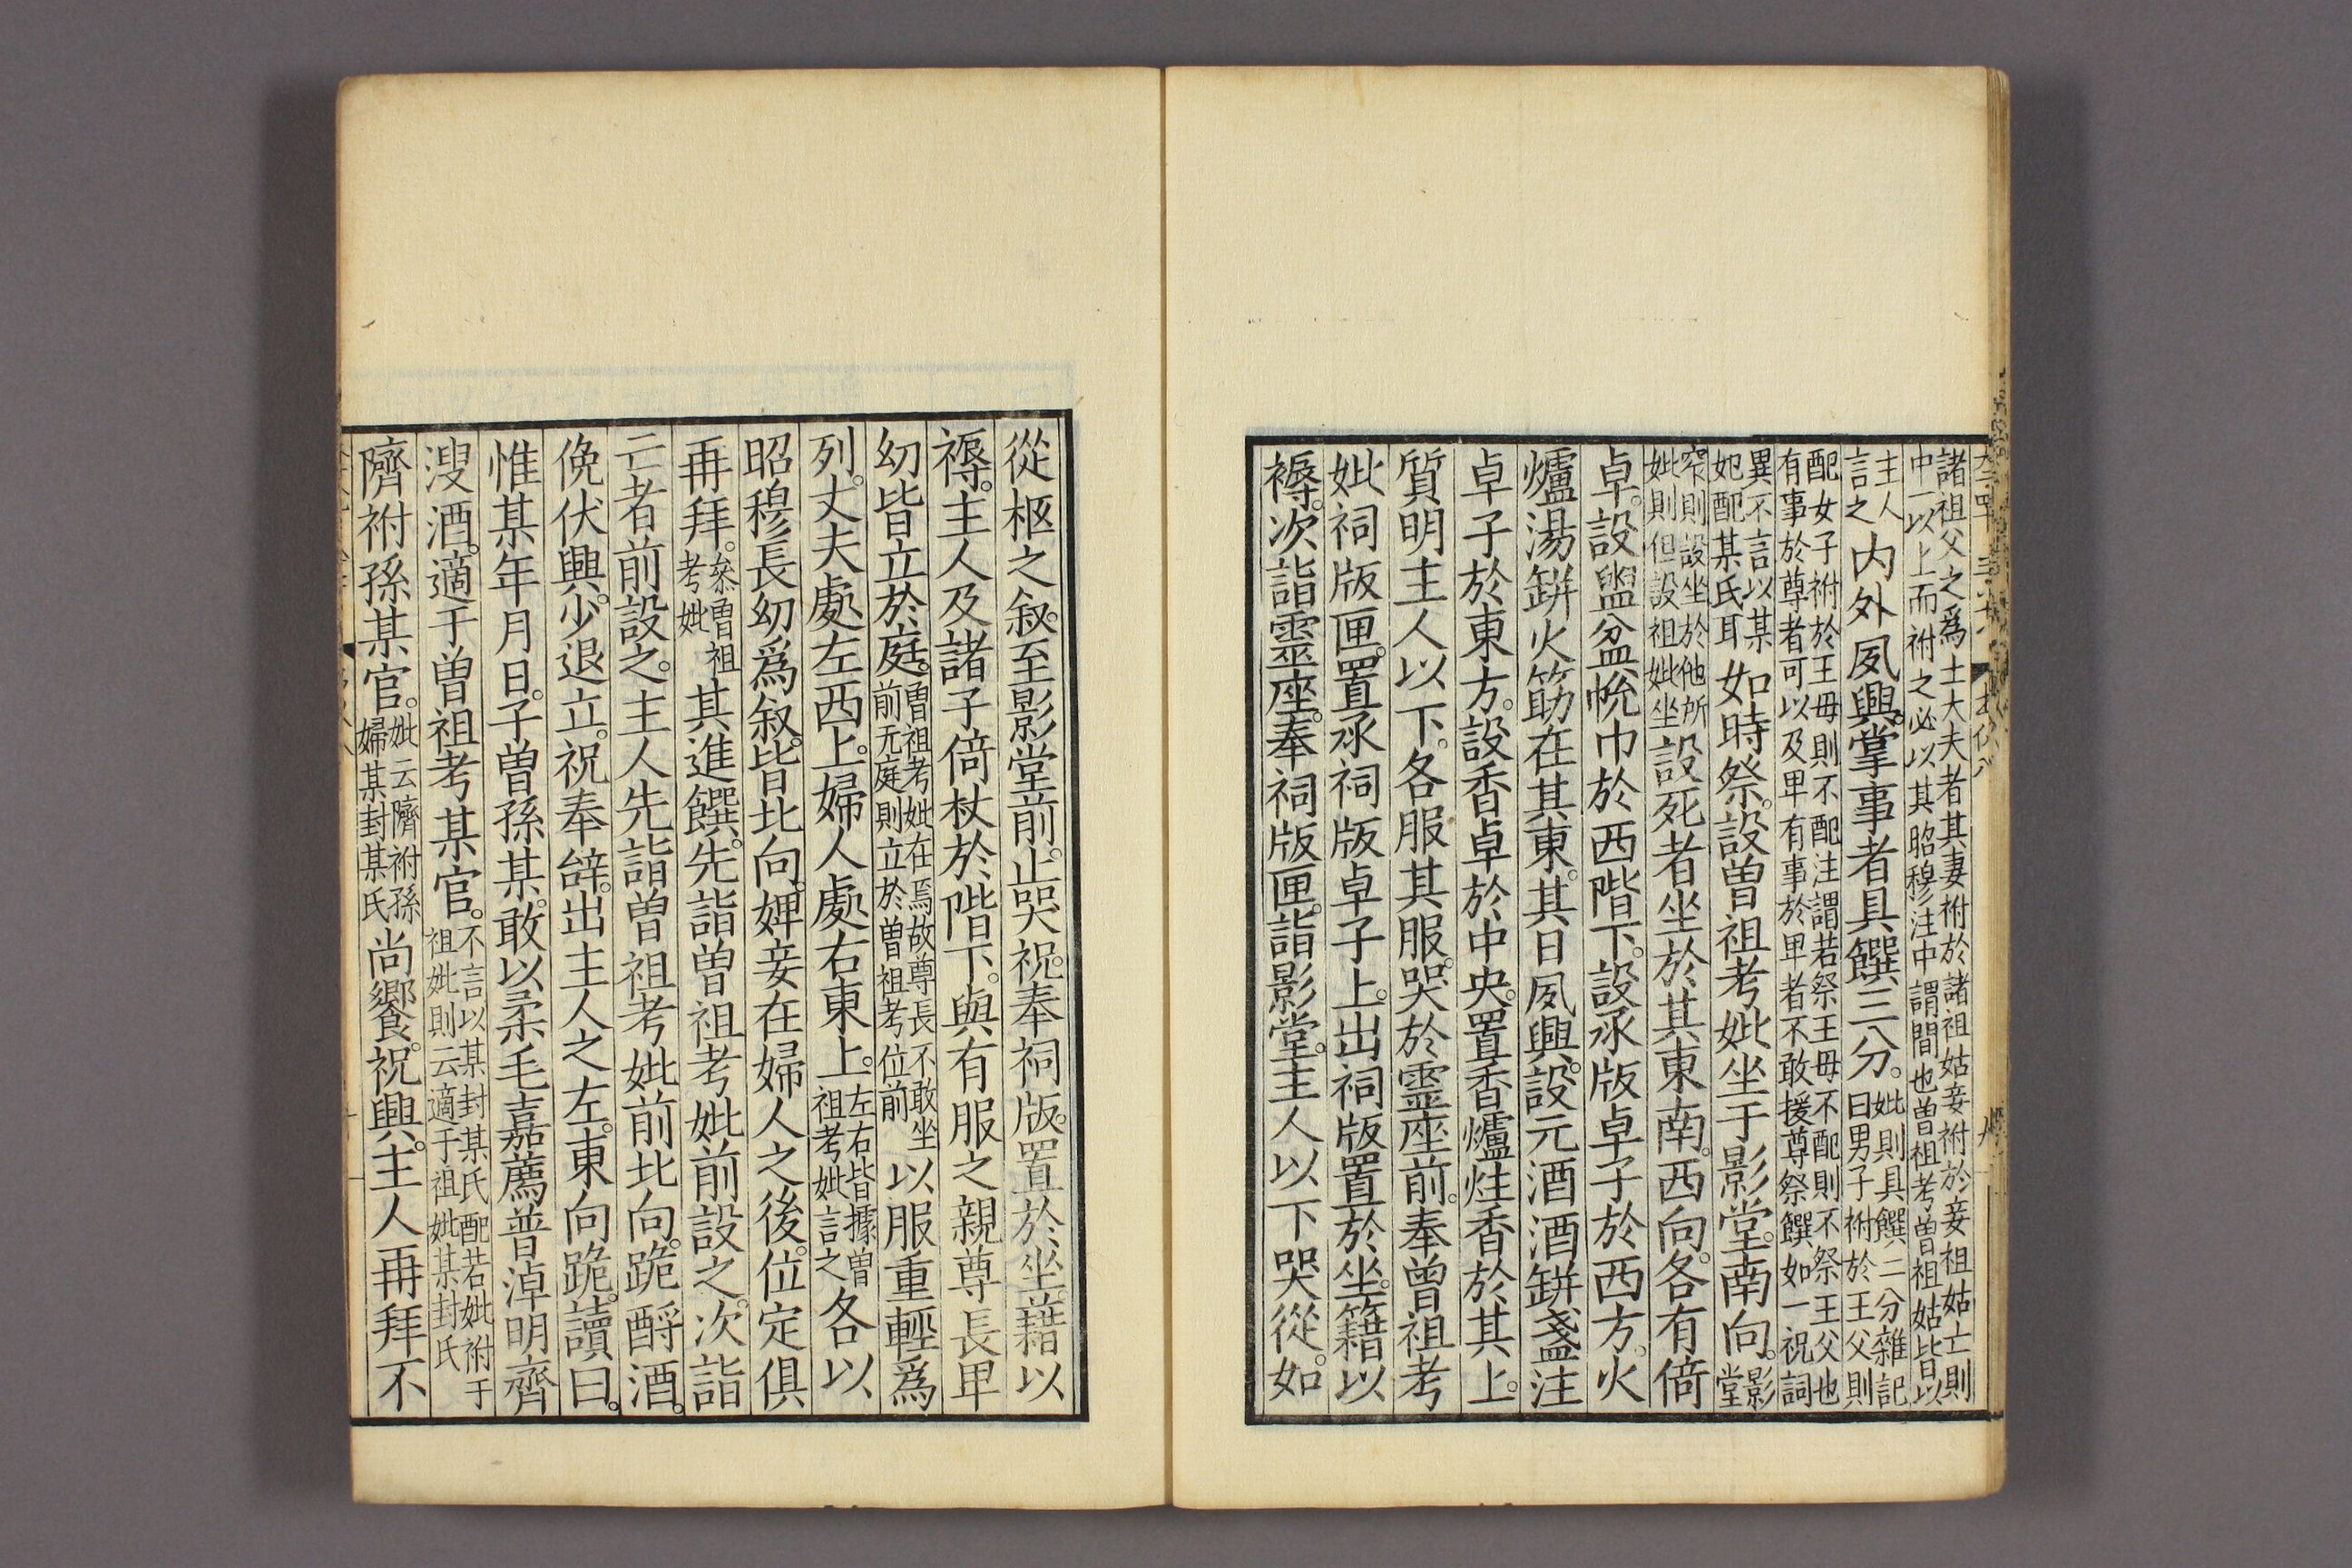 諸祖父之爲士大夫者其妻祔於諸祖姑妾祔於妾祖姑亡則
中一以上而祔之必以其昭穆注中謂間也曽祖考曽祖姑皆以
主人
言之
内外夙興。掌事者具饌三分。
妣則具饌二分雜記
曰男子祔於王父則
配女子祔於王毋則不配注謂若祭王毋不配則不祭王父也
有事於尊者可以及卑有事於卑者不敢援尊祭饌如一祝詞
異不言以某
妃配某氏耳
如時祭。設曽祖考妣坐于影堂。南向。
影
堂
窄則設坐於他所
妣則但設祖妣坐
設死者坐於其東南。西向。各有倚
卓。設盥盆帨巾於西階下。設承版卓子於西方。火
爐湯缾火筯在其東。其日夙興。設元酒酒缾盞注
卓子於東方。設香卓於中央。置香爐炷香於其上。
質明主人以下。各服其服。哭於靈座前。奉曽祖考
妣祠版匣。置承祠版卓子上。出祠版置於坐。籍以
褥。次詣靈座。奉祠版匣。詣影堂。主人以下哭從。如
從柩之叙。至影堂前。止哭。祝奉祠版。置於坐。藉以
褥。主人及諸子倚杖於階下。與有服之親尊長卑
幼皆立於庭。
曽祖考妣在焉故尊長不敢坐
前无庭則立於曽祖考位前
以服重輕爲
列。丈夫處左西上。婦人處右東上。
左右皆據曽
祖考妣言之
各以
昭穆長幼爲叙。皆北向。婢妾在婦人之後。位定俱
再拜。
叅曽祖
考妣
其進饌。先詣曽祖考妣前設之。次詣
亡者前設之。主人先詣曽祖考妣前北向。跪酹酒。
俛伏興。少退立。祝奉辝。出主人之左。東向跪。讀曰。
惟某年月日。子曽孫某。敢以柔毛嘉薦普淖明齊
溲酒。適于曽祖考某官。
不言以某封某氏配若妣祔于
祖妣則云適于祖妣某封氏
隮祔孫某官。
妣云隮祔孫
婦某封某氏
尚饗。祝興。主人再拜不